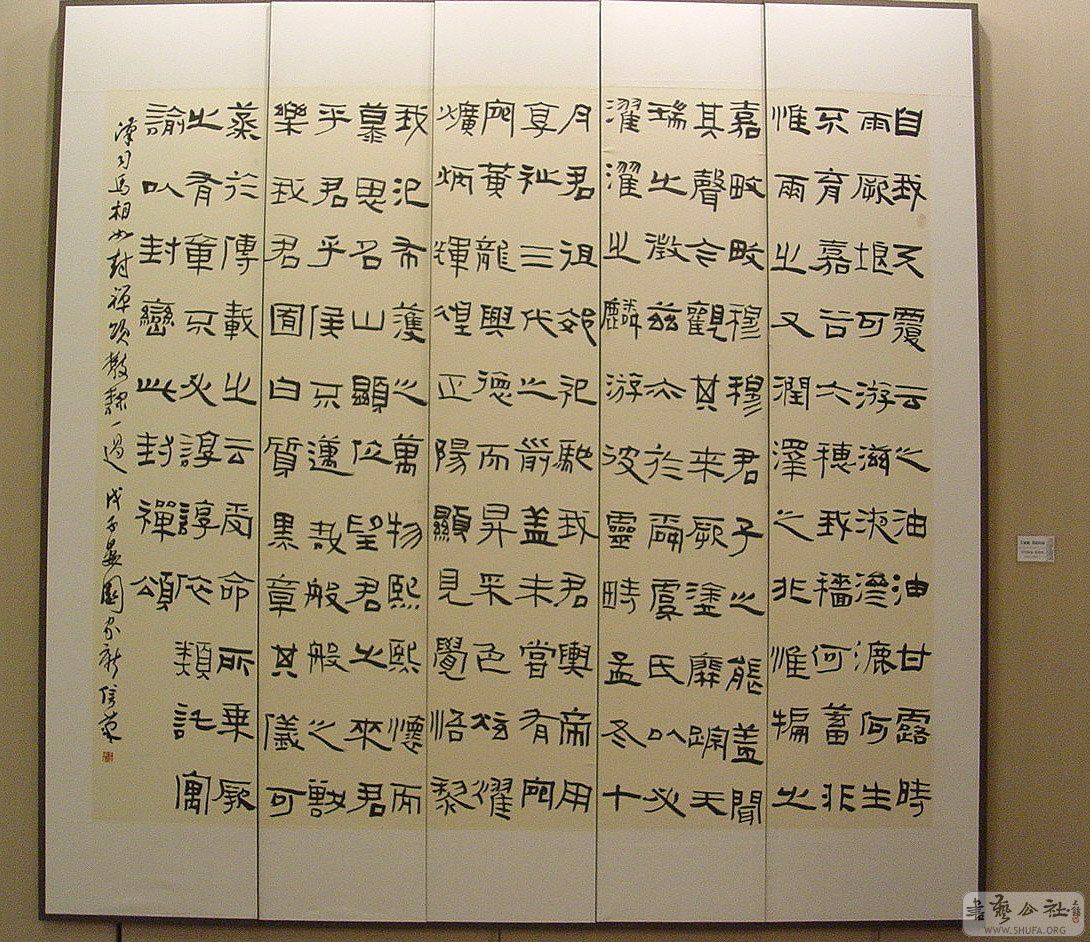 自我天覆云之油油甘露時
雨厥壤可游滋液滲漉何生
不育嘉谷六穗我穡何蓄非
惟雨之又潤澤之非惟徧之
嘉旼旼穆穆君子之態盖聞
其聲今觀其来厥塗靡蹤天
瑞之徵茲亦於舜虞氏以必
濯濯之麟游彼靈畤孟冬十
月君徂郊祀馳我君輿帝用
享祉三代之前盖未嘗有宛
宛黃龍興德而昇采色炫耀
熿炳輝煌正陽顯見覺悟黎
我氾布濩之萬物熙熙懷而
慕思名山顯位望君之來君
乎君乎侯不邁哉般般之獸
樂我君囿白質黑章其儀可
蒸於傳載之云受命所乘厥
之有章不必諄諄依類託寓
諭以封巒此封禪頌
漢司馬相如封禪頌散隸一過 戊子
書藝公社
WWW.SHUFA.ORG